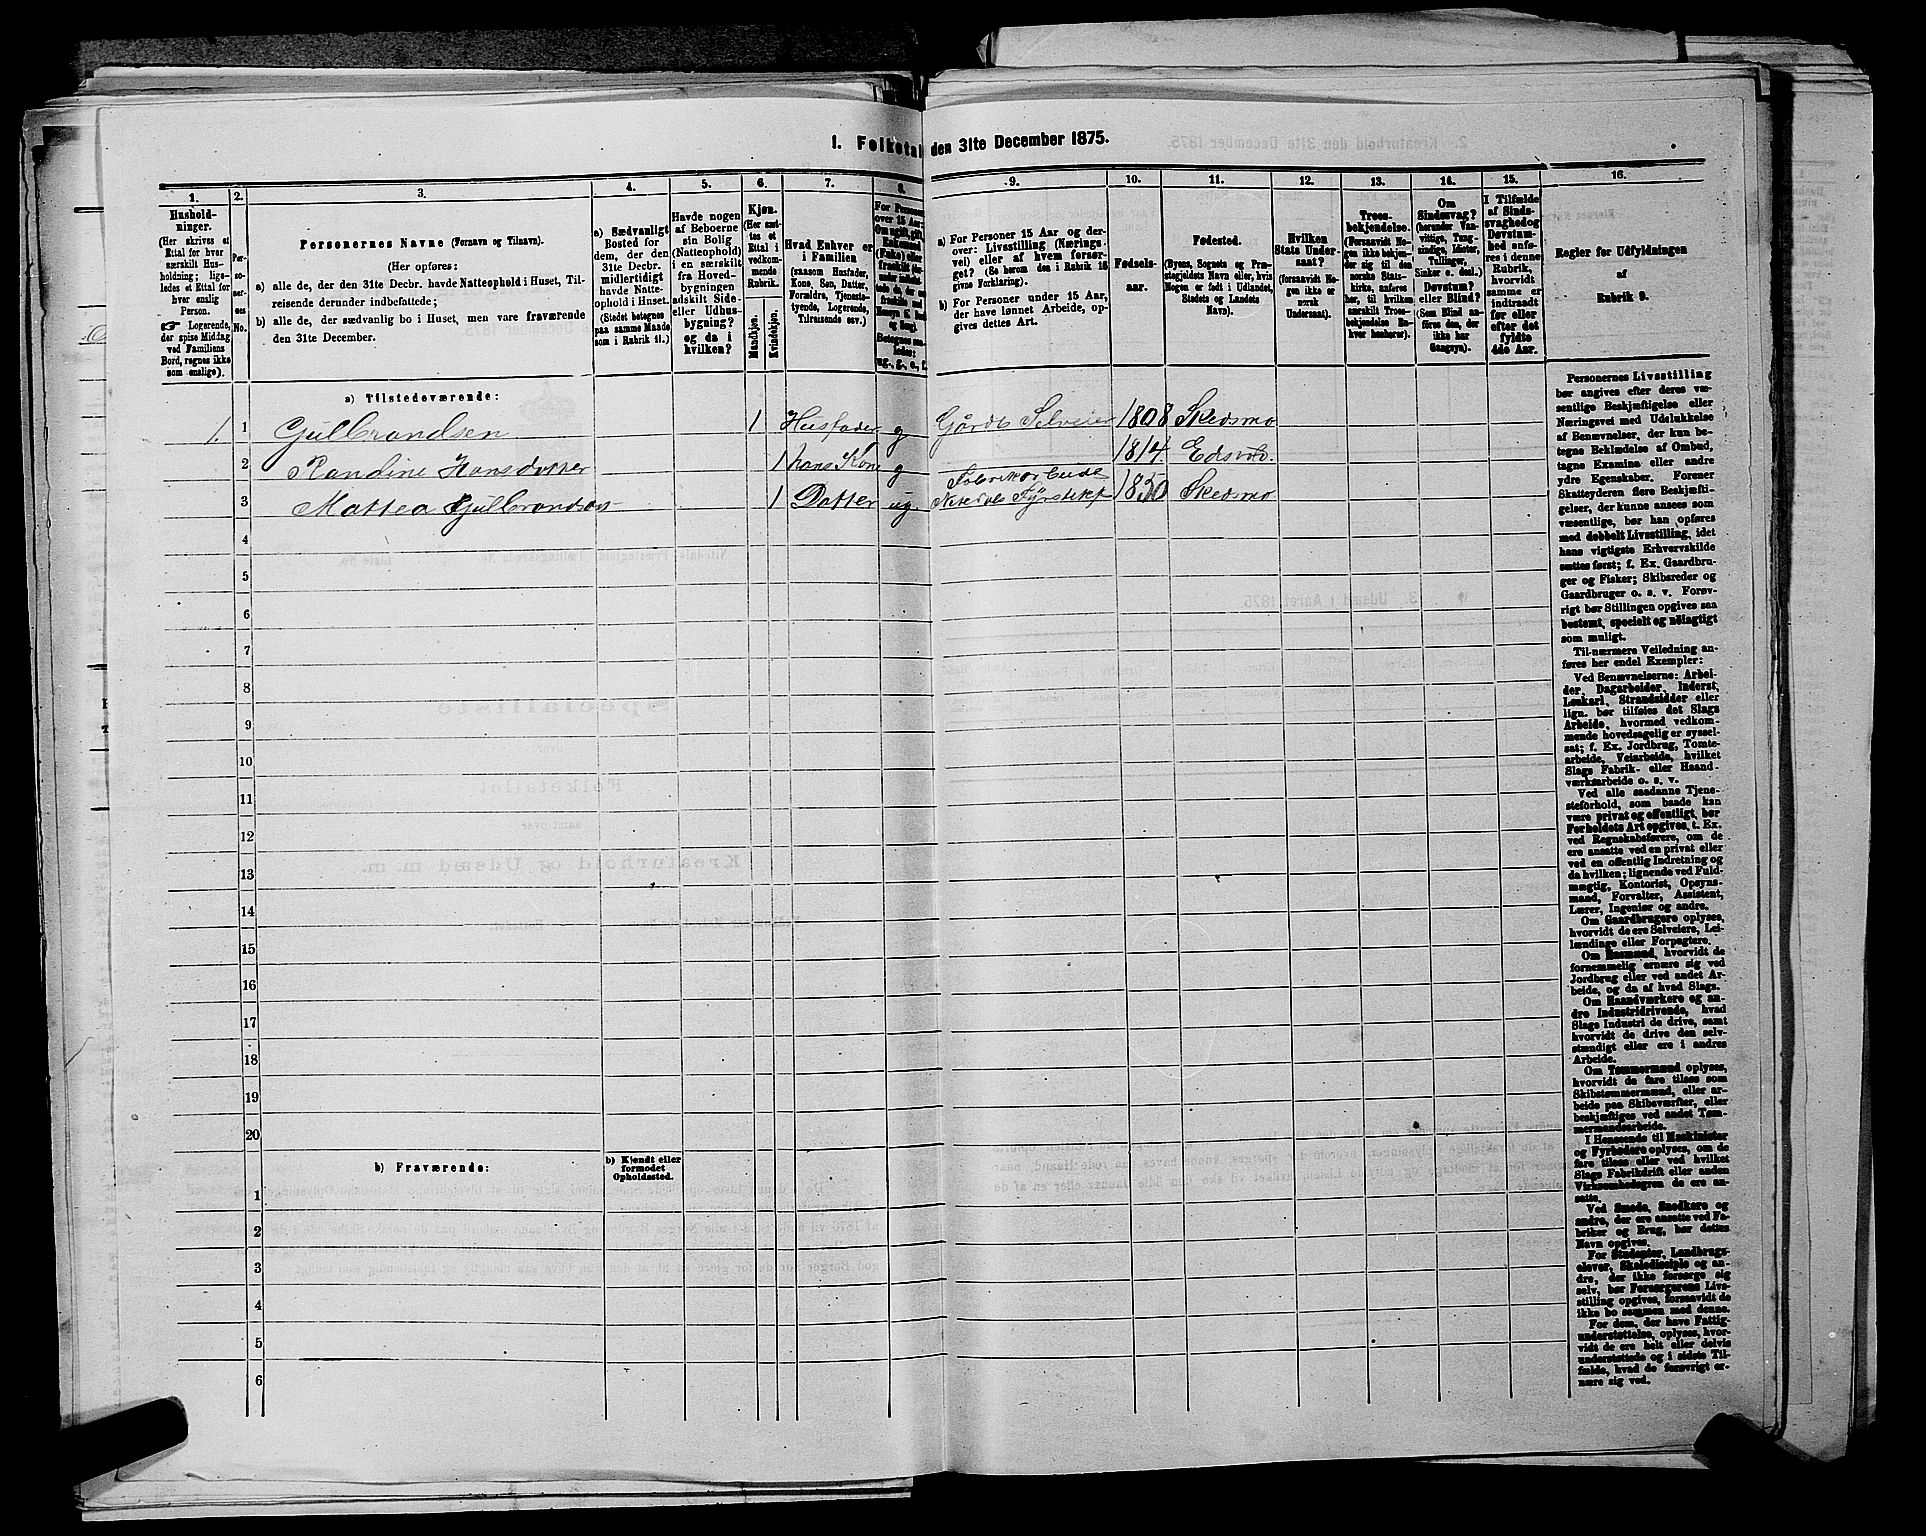 1. Folketal den 31te December 1875.
1. 2. 3. 4. 5. 6. 7. 8. 9. 10. 11. 12. 13. 14. 15. 16.
Husholdninger.
(Her skrives et
Ettal for hver
særskilt Husholdning;
ligeledes et Ettal for
hver enslig
Person.
☞ Logerende,
der spise Middag
ved Familiens
Bord, regnes ikke
som enslige).
Personernes No.
Personernes Navne (Fornavn og Tilnavn).
(Her opføres:
a) alle de, der den 31te Decbr. havde Natteophold i Huset, Tilreisende
derunder indbefattede;
b) alle de, der sædvanlig bo i Huset, men vare fraværende
den 31te December.
a) Sædvanligt
Bosted for
dem, der den
31te Decbr.
midlertidigt
havde Natteophold
i Huset.
(Stedet betegnes
paa samme Maade
som i Rubrik 11.)
Havde nogen
af Beboerne
sin Bolig
(Natteophold)
i en særskilt
fra Hovedbygningen
adskilt Side-
eller Udhusbygning?
og da i
hvilken?
Kjøn.
(Her sættes
et
Ettal i
vedkommende
Rubrik.
Mandkjøn.
Kvindekjøn.
Hvad Enhver er
i Familien
(saasom Husfader,
Kone, Søn, Datter,
Forældre, Tjenestetyende,
Logerende,
Tilreisende osv.)
For Personer
over 15 Aar:
Om ugift, gift,
Enkemand
(Enke) eller
fraskilt
ug., g., e., f.
a) For Personer 15 Aar og derover:
Livsstilling (Næringsvei)
eller af hvem forsørget?
(Se herom den i Rubrik 16
givne Forklaring).
b) For Personer under 15 Aar,
der have lønnet Arbeide, opgives
dettes Art.
Fødselsaar.
Fødested.
(Byens, Sognets og Præstegjeldets
Navn eller, hvis
Nogen er født i Udlandet,
Stedets og Landets
Navn).
Hvilken
Stats Undersaat?
(forsaavidt Nogen
ikke er
norsk
Undersaat).
Troesbekjendelse.
(Forsaavidt Nogen
ikke bekjender
sig til den
norske Statskirke,
anføres
her, til hvilken
særskilt Troesbekjendelse
Enhver
henhører).
Om
Sindssvag?
(herunder Vanvittige,
Tungsindige,
Idioter,
Tullinger,
Sinker o. desl.)
Døvstum?
eller Blind?
(Som Blind anføres
den, der
ikke har
Gangsyn).
I Tilfælde
af Sindssvaghed
og
Døvstumhed
anføres
i denne
Rubrik,
hvorvidt
samme er
indtraadt
før eller
efter det
fyldte
4de Aar.
Regler for Udfyldningen
af
Rubrik 9.
a) Tilstedeværende:
1. 1 Gulbrandsen 1 Husfader g Gårdb. Selveier 1808 Skedsmo
2 Randine Hansdatter 1 hans Kone g 1814 Edsvol.
3 Mattea Gulbrandsen 1 Datter ug. Fabrikarbeide Nitedals Fyrstikf 1850 Skedsmo
4
5
6
7
8
9
10
11
12
13
14
15
16
17
18
19
20
b) Fraværende:
b) Kjendt eller
formodet
Opholdssted.
1
2
3
4
5
6
Personernes Livsstilling
bør angives efter deres væsentlige
Beskjæftigelse eller
Næringsvei med Udelukkelse
af Benævnelser, der kun betegne
Beklædelse af Ombud,
tagne Examina eller andre
ydre Egenskaber. Forener
Skatteyderen flere Beskjæftigelser,
der kunne ansees som
væsentlige, bør han opføres
med dobbelt Livsstilling, idet
hans vigtigste Erhvervskilde
sættes først; f. Ex. Gaardbruger
og Fisker; Skibsreder og
Gaardbruger o. s. v. Forøvrigt
bør Stillingen opgives saa
bestemt, specielt og nøiagtigt
som muligt.
Til nærmere Veiledning anføres
her endel Exempler:
Ved Benævnelserne: Arbeider,
Dagarbeider, Inderst,
Løskarl, Strandsidder eller
lign. bør tilføies det Slags
Arbeide, hvormed vedkommende
hovedsagelig er sysselsat;
f. Ex. Jordbrug, Tomtearbeide,
Veiarbeide, hvilket
Slags Fabrik- eller Haandværksarbeide
o. s. v.
Ved alle saadanne Tjenesteforhold,
som baade kan
være privat og offentligt, bør
Forholdets Art opgives, t. Ex.
ved Regnskabsførere, om de
ere ansatte ved en privat eller
ved en offentlig Indretning og
da hvilken; lignende ved Fuldmægtig,
Kontorist, Opsynsmand,
Forvalter, Assistent,
Lærer, Ingeniør og andre.
Om Gaardbrugere oplyses,
hvorvidt de ere Selveiere, Leilændinge
eller Forpagtere.
Om Husmænd, hvorvidt de
fornemmelig ernære sig ved
Jordbrug eller ved andet Arbeide,
og da af hvad Slags.
Om Haandværkere og andre
Industridrivende, hvad
Slags Industri de drive, samt
hvorvidt de drive den selvstændigt
eller ere i andres
Arbeide.
Om Tømmermænd oplyses,
hvorvidt de fare tilsøs som
Skibstømmermænd, eller arbeide
paa Skibsværfter, eller
beskjæftiges ved andet Tømmermandsarbeide.
I Henseende til Maskinister
og Fyrbødere oplyses, om de
fare tilsøs eller ved hvilket
Slags Fabrikdrift eller anden
Virksomhed de ere ansatte.
Ved Smede, Snedkere og
andre, der ere ansatte ved Fabriker
og Brug, bør dettes
Navn opgives.
For Studenter, Landbrugselever,
Skoledisciple og andre,
der ikke forsørge sig
selv, bør Forsørgerens Livsstilling
opgives, forsaavidt de
ikke bo sammen med denne.
For dem, der have Fattigunderstøttelse,
oplyses, hvorvidt
de ere helt eller delvis
understøttede og i sidste Tilfælde,
hvad de forøvrigt ernære
sig ved.